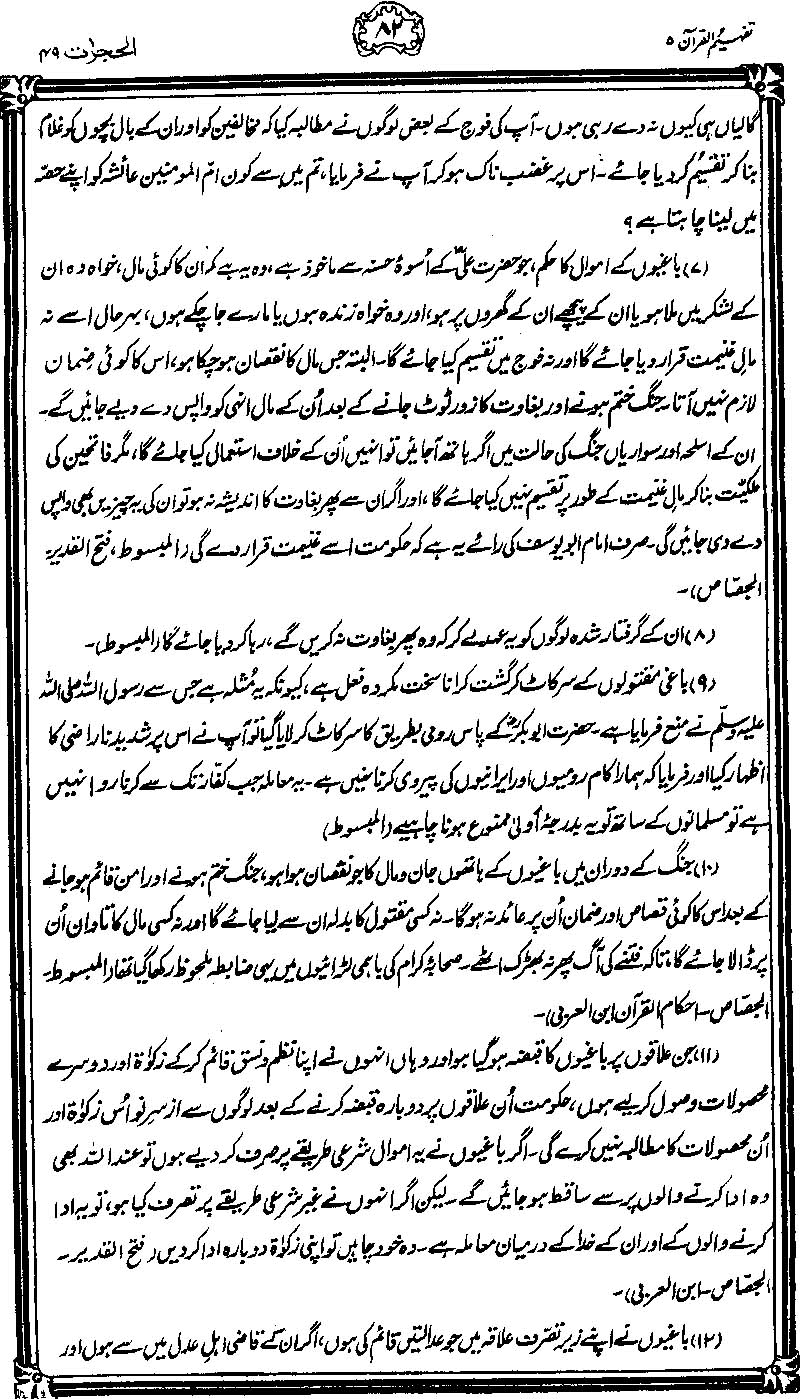 تفہیم القرآن ۵
۸۲
الحجرات ۴۹
گالیاں ہی کیوں نہ دے رہی ہوں۔ آپ کی فوج کے بعض لوگوں نے مطالبہ کیا کہ مخالفین کو اور ان کے بال بچوں کو غلام
بنا کر تقسیم کر دیا جائے۔ اس پر غضب ناک ہو کر آپ نے فرمایا، تم میں سے کون امّ المومنین عائشہ کو اپنے حصّہ
میں لینا چاہتا ہے؟
(۷) باغیوں کے اموال کا حکم، جو حضرت علیؓ کے اُسوۂ حسنہ سے ماخوذ ہے، وہ یہ ہے کہ ان کا کوئی مال، خواہ وہ ان
کے لشکر میں ملا ہو یا ان کے پیچھے ان کے گھروں پر ہو، اور وہ خواہ زندہ ہوں یا مارے جا چکے ہوں، بہرحال اسے نہ
مالِ غنیمت قرار دیا جائے گا اور نہ فوج میں تقسیم کیا جائے گا۔ البتہ جس مال کا نقصان ہو چکا ہو، اس کا کوئی ضمان
لازم نہیں آتا۔ جنگ ختم ہونے اور بغاوت کا زور ٹوٹ جانے کے بعد اُن کے مال انہی کو واپس دے دیے جائیں گے۔
ان کے اسلحہ اور سواریاں جنگ کی حالت میں اگر ہاتھ آجائیں تو انہیں اُن کے خلاف استعمال کیا جائے گا، مگر فاتحین کی
ملکیت بنا کر مالِ غنیمت کے طور پر تقسیم نہیں کیا جائے گا، اور اگر ان سے پھر بغاوت کا اندیشہ نہ ہو تو ان کی یہ چیزیں بھی واپس
دے دی جائیں گی۔ صرف امام ابو یوسف کی رائے یہ ہے کہ حکومت اسے غنیمت قرار دے گی (المبسوط، فتح القدیر،
الجصّاص)۔
(۸) ان کے گرفتار شدہ لوگوں کو یہ عہد لے کر کہ وہ پھر بغاوت نہ کریں گے، رہا کر دیا جائے گا (المبسوط)۔
(۹) باغی مقتولوں کے سر کاٹ کر گشت کرانا سخت مکروہ فعل ہے، کیونکہ یہ مُثلہ ہے جس سے رسول اللہ صلی اللہ
علیہ وسلّم نے منع فرمایا ہے۔ حضرت ابوبکرؓ کے پاس رومی بطریق کا سر کاٹ کر لایا گیا تو آپ نے اس پر شدید ناراضی کا
اظہار کیا اور فرمایا کہ ہمارا کام رومیوں اور ایرانیوں کی پیروی کرنا نہیں ہے۔ یہ معاملہ جب کفّار تک سے کرنا روا نہیں
ہے تو مسلمانوں کے ساتھ تو یہ بدرجۂ اُولیٰ ممنوع ہونا چاہیے (المبسوط)
(۱۰) جنگ کے دوران میں باغیوں کے ہاتھوں جان و مال کا جو نقصان ہوا ہو، جنگ ختم ہونے اور امن قائم ہوجانے
کے بعد اس کا کوئی قصاص اور ضمان اُن پر عائد نہ ہوگا۔ نہ کسی مقتول کا بدلہ ان سے لیا جائے گا اور نہ کسی مال کا تاوان اُن
پر ڈالا جائے گا، تاکہ فتنے کی آگ پھر نہ بھڑک اٹھے۔ صحابۂ کرام کی باہمی لڑائیوں میں یہی ضابطہ ملحوظ رکھا گیا تھا (المبسوط۔
الجصّاص۔ احکام القرآن ابن العربی)۔
(۱۱) جن علاقوں پر باغیوں کا قبضہ ہو گیا ہو اور وہاں انہوں نے اپنا نظم و نسق قائم کر کے زکوٰۃ اور دوسرے
محصولات وصول کر لیے ہوں، حکومت اُن علاقوں پر دوبارہ قبضہ کرنے کے بعد لوگوں سے از سرِ نو اُس زکوٰۃ اور
اُن محصولات کا مطالبہ نہیں کرے گی۔ اگر باغیوں نے یہ اموال شرعی طریقے پر صرف کر دیے ہوں تو عند اللہ بھی
وہ ادا کرنے والوں پر سے ساقط ہو جائیں گے۔ لیکن اگر انہوں نے غیر شرعی طریقے پر تصرف کیا ہو، تو یہ ادا
کرنے والوں کے اور ان کے خدا کے درمیان معاملہ ہے۔ وہ خود چاہیں تو اپنی زکوٰۃ دوبارہ ادا کر دیں (فتح القدیر۔
الجصّاص۔ ابن العربی)۔
(۱۲) باغیوں نے اپنے زیر تصرّف علاقہ میں جو عدالتیں قائم کی ہوں، اگر ان کے قاضی اہلِ عدل میں سے ہوں اور